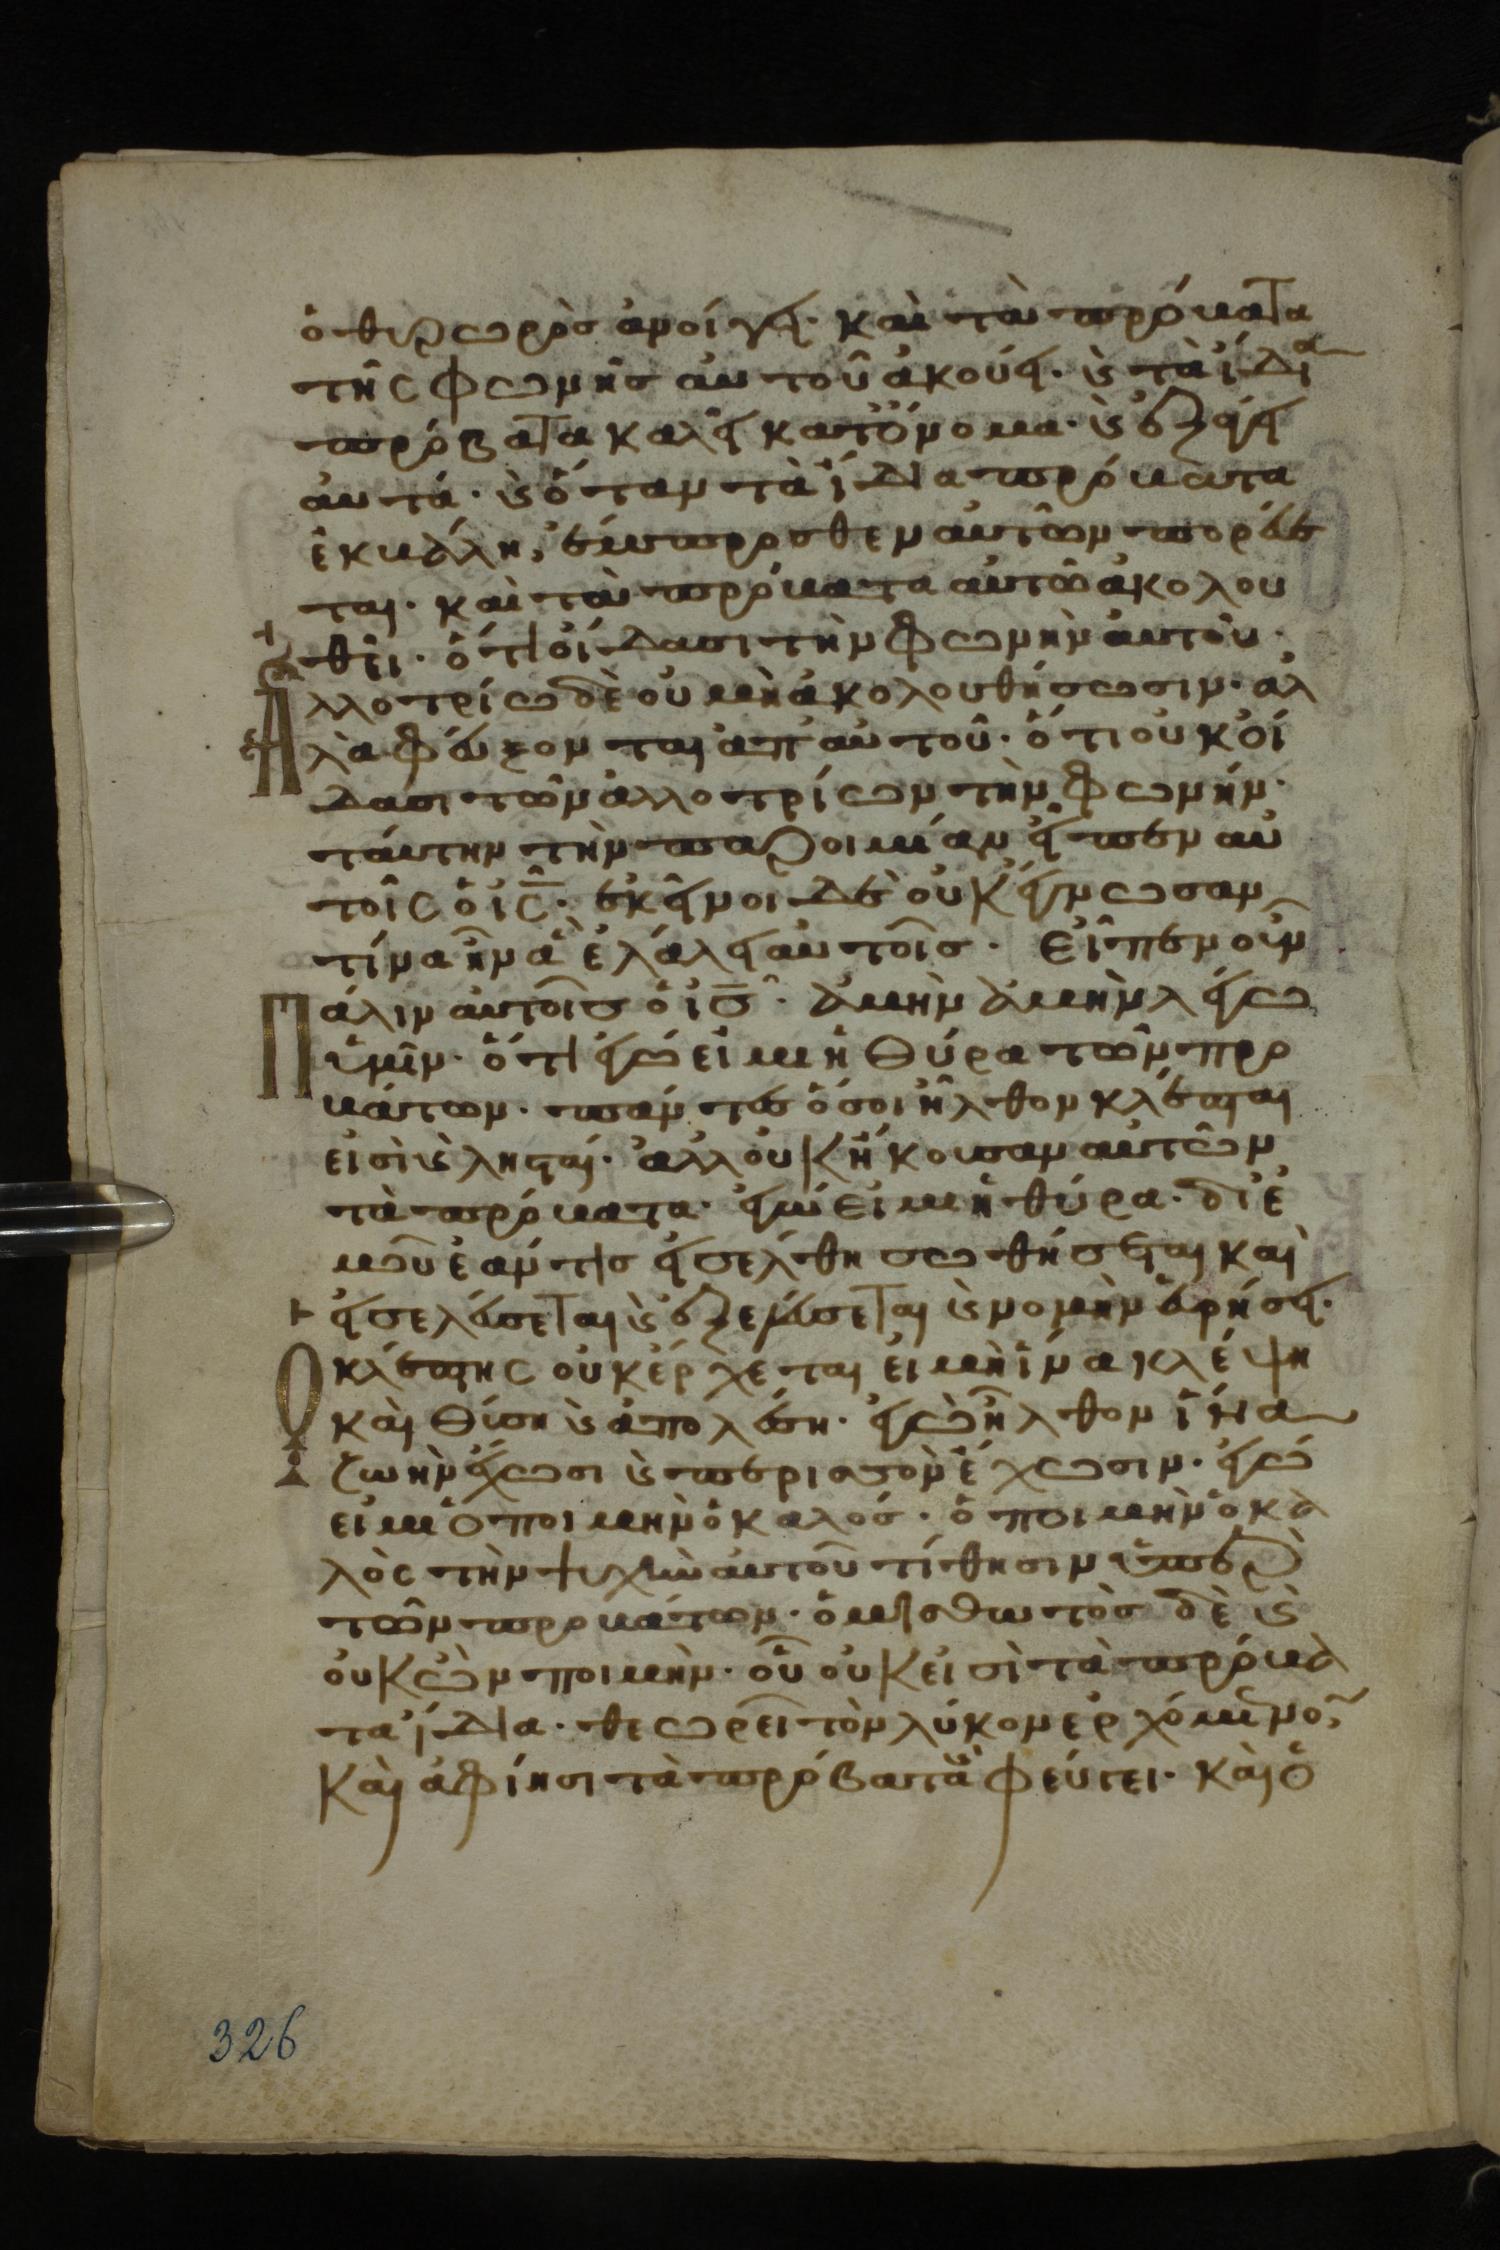 ὁ θυρωρὸσ ἀνοίγει· καὶ τὰ πρόβατα
τῆς φωνῆσ αὐτοῦ ἀκούει· ϗ τὰ ἴδια
πρόβατα καλεῖ κατ' ὄνομα· ϗ ἐξάγει
αὐτά· ϗ ὅταν τὰ ἴδια πρόβατα
ἐκβάλη, ἔμπροσθεν αὐτῶν πορεύε
ται· καὶ τὰ πρόβατα αὐτῶ ἀκολου
θεῖ· ὅτι οἴδασι τὴν φωνὴν αὐτοῦ·
Ἀλλοτρίω δὲ οὐ μὴ ἀκολουθήσωσιν· ἀλ
λὰ φεύξονται ἀπ' αὐτοῦ· ὅτι οὐκ οἴ
δασι τῶν ἀλλοτρίων τὴν φωνήν·
ταύτην τὴν παροιμίαν εἶπεν αὐ
τοῖς ὁ ις· ἐκεῖνοι δὲ οὐκ ἔγνωσαν
τίνα ἦν ἃ ἐλάλει αὐτοῖσ· Εἶπεν οὖν
Πάλιν αὐτοῖσ ὁ ισ· ἀμὴν ἀμὴν λέγω
ὑμῖν· ὅτι ἐγώ εἰμι ἡ θύρα τῶν προ
βάτων· πάντεσ ὅσοι ἦλθον κλέπται
εἰσὶ ϗ λησταί· ἀλλ' οὐκ ἤκουσαν αὐτῶν
τὰ πρόβατα· ἐγώ εἰμι ἡ θύρα· δι' ἐ
μοῦ ἐάν τισ εἰσέλθη σωθήσεται καὶ
εἰσελεύσεται ϗ ἐξελεύσεται ϗ νομὴν εὑρήσει·
Ὁ κλέπτης οὐκ ἔρχεται εἰ μὴ ἵνα κλέψη
καὶ θύση ϗ ἀπολέση· ἐγὼ ἦλθον ἵνα
ζωὴν ἔχωσι ϗ περισσὸν ἔχωσιν· ἐγώ
εἰμι ὁ ποιμὴν ὁ καλόσ· ὁ ποιμὴν ὁ κα
λὸς τὴν ψυχὴν αὐτοῦ τίθησιν ὑπὲρ
τῶν προβάτων· ὁ μισθωτὸσ δὲ ϗ
οὐκ ὢν ποιμὴν· οὗ οὐκ εἰσὶ τὰ πρόβα
τα ἴδια· θεωρεῖ τὸν λύκον ἐρχόμενον,
καὶ ἀφίησι τὰ πρόβατα ϗ φεύγει· καὶ ὁ
326